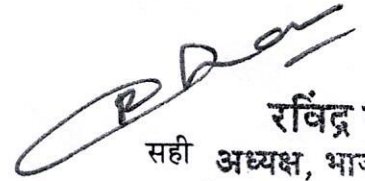 रविंद्र
सही अध्यक्ष,